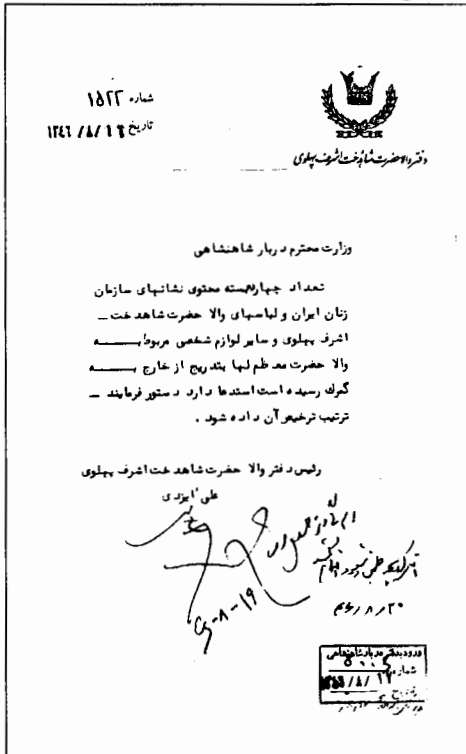 شماره ۱۵۲۲
تاریخ ۱۳۴۶/۸/۱۴
دفتر والاحضرت شاهدخت اشرف پهلوی
وزارت محترم دربار شاهنشاهی
تعداد چهاربسته محتوی نشانهای سازمان
زنان ایران و لباسهای والا حضرت شاهدخت ـ
اشرف پهلوی و سایر لوازم شخصی مربوط بـــه
والا حضرت معظم لها بتدریج از خارج بـــه
گمرک رسیده است استدعا دارد دستور فرمایند ـ
ترتیب ترخیص آن داده شود .
رئیس دفتر والا حضرت شاهدخت اشرف پهلوی
علی ایزدی
۱۹-۸-
۲۰ر۸ر۴۶
ورود بدفتر دربار شاهنشاهی
شماره
تاریخ